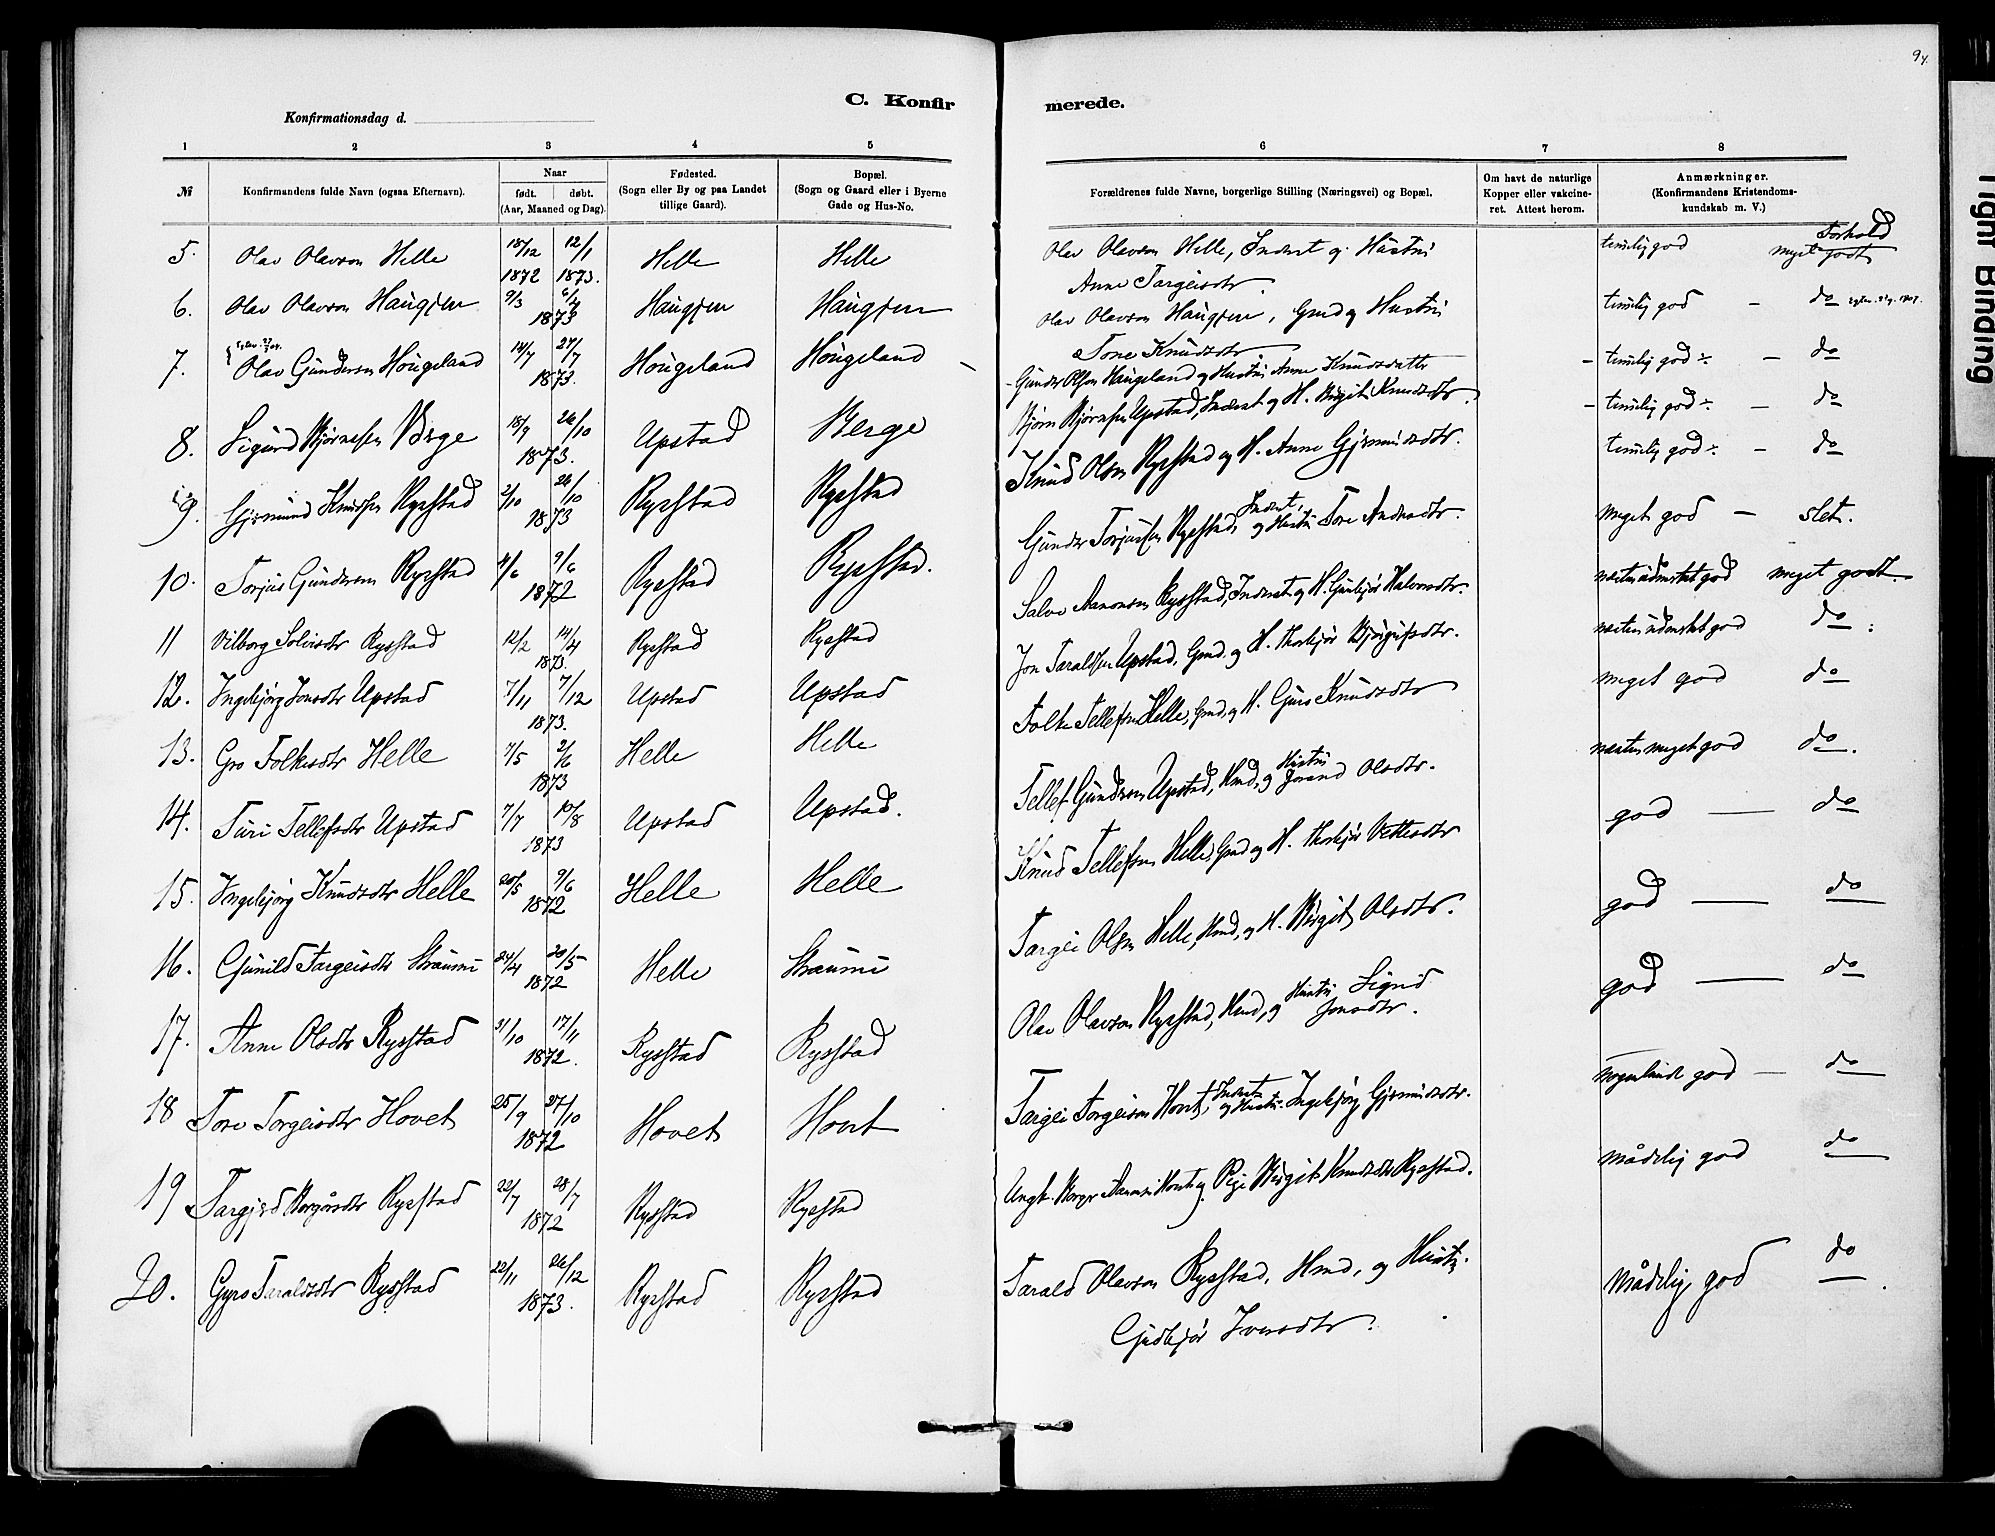 94.
C. Konfirmerede.
Konfirmationsdag d.
1 2 3 4 5 6 7 8
№ Konfirmandens fulde Navn (ogsaa Efternavn). Naar født. døbt. (Aar, Maaned og Dag). Fødested. (Sogn eller By og paa Landet tillige Gaard). Bopæl. (Sogn og Gaard eller i Byerne Gade og Hus-No. Forældrenes fulde Navne, borgerlige Stilling (Næringsvei) og Bopæl. Om havt de naturlige Kopper eller vakcineret. Attest herom. Anmærkninger. (Konfirmandens Kristendomskundskab m. V.)
Forhold
5. Olav Olavson Helle 18/12 1872 12/1 1873. Helle Helle Olav Olavson Helle, Inderst og Hustrú Anne Targeisdtr. temelig god meget godt
6. Olav Olavson Haúgjen 9/3 6/4 1873 Haúgjen Haúgjen Olav Olavson Haúgjen, Gmd og Hústrú Tone Knúdsdtr temelig god – do
7. Olav Gúnderson Hoúgeland 14/7 27/7 1873. Hoúgeland Hoúgeland Gúnder Olsen Haúgeland og Hústrú Anne Knúdsdatter – temelig god÷ – do
8. Sigúrd Bjørnsen Berge 18/9 26/10 1873. Upstad Berge Bjørn Bjørnsen Upstad, Inderst og H. Birgit Knudsdtr. – temelig god÷ – do
9. Gjermúnd Knúdsen Rysstad 2/10 26/10 1873 Rysstad Rysstad Knúd Olsen Rysstad og H. Anne Gjermúndsdtr. temelig god÷ – do
10. Torjús Gúnderson Rysstad 4/6 9/6 1872 Rysstad Rysstad. Gúnder Torjússen Rysstad, Inderst, og Hústrú Tore Andersdtr. meget god – slet.
11 Vilborg Solvisdtr Rysstad 12/2 14/4 1873. Rysstad Rysstad Salve Aanonsen Rysstad, Inderst og H. Gúnbjør Halvorsdtr. næsten údmerket god meget godt.
12. Ingebjørg Jonsdtr Upstad 7/11 7/12 1873. Upstad Upstad Jon Taraldsen Upstad, Gmd. og H. Thorbjør Bjørgúfsdtr. næsten údmerket god do.
13. Gro Folkesdtr Helle 7/5 2/6 1873 Helle Helle Folke Tellefsen Helle, Gmd, og H. Gúro Knúdsdtr meget god do
14. Túri Tellefsdtr Upstad 7/7 10/8 1873 Upstad Upstad. Tellef Gúnderson Upstad, Hmd, og Hústrú Jorand Olsdtr. næsten meget god do.
15. Ingebjørg Knúdsdtr Helle 20/5 9/6 1872 Helle Helle Knúd Tellefson Helle, Gmd og H. Thorbjør Vettesdtr god — do
16. Gúnild Targeisdtr Straúme 24/4 20/5 1872 Helle Straúme Targei Olsen Helle, Hmd, og H. Birgit Olsdtr. god — do
17. Anne Olsdtr Rysstad 31/10 17/11 1872. Rysstad Rysstad Olav Olavson Rysstad, Hmd, og Hústrú Sigrid Jonsdtr. god — do
18 Tore Torgeisdtr Hovet 25/9 27/10 1872 Hovet Hovet Targei Torgeisen Hovet, Inderst og Hústrú. Ingebjørg Gjermúndsdtr. nogenlúnde god — do
19 Targjerd Borgarsdtr Rysstad 22/7 28/7 1872 Rysstad Rysstad Ungk. Borgar Aanonsen Hovet og Pige Birgit Knudsdtr Rysstad. mådelig god do
20. Gyro Taraldsdtr Rysstad 22/11 26/12 1873. Rysstad Rysstad Tarald Olavson Rysstad, Hmd, og Hústr. Gúdbjør Iversdtr. mådelig god do
Tight Binding